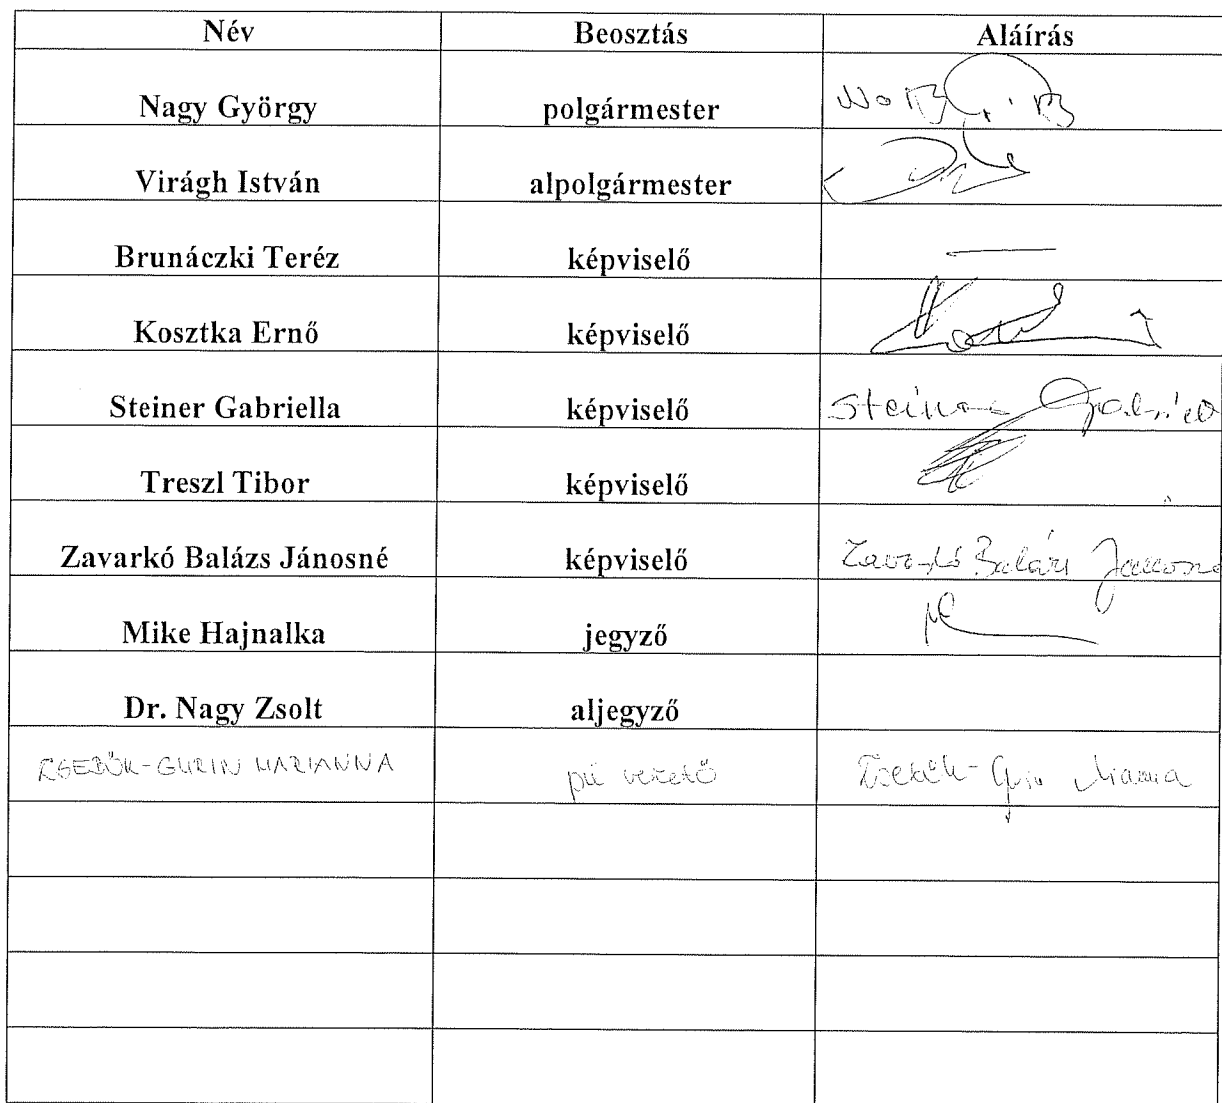 Név Beosztás Aláírás
Nagy György polgármester
Virágh István alpolgármester
Brunáczki Teréz képviselő
Kosztka Ernő képviselő
Steiner Gabriella képviselő Steiner
Treszl Tibor képviselő
Zavarkó Balázs Jánosné képviselő Zavarkó Balázs Jánosné
Mike Hajnalka jegyző
Dr. Nagy Zsolt aljegyző
ZSEBŐK-GURIN MARIANNA pü vezető